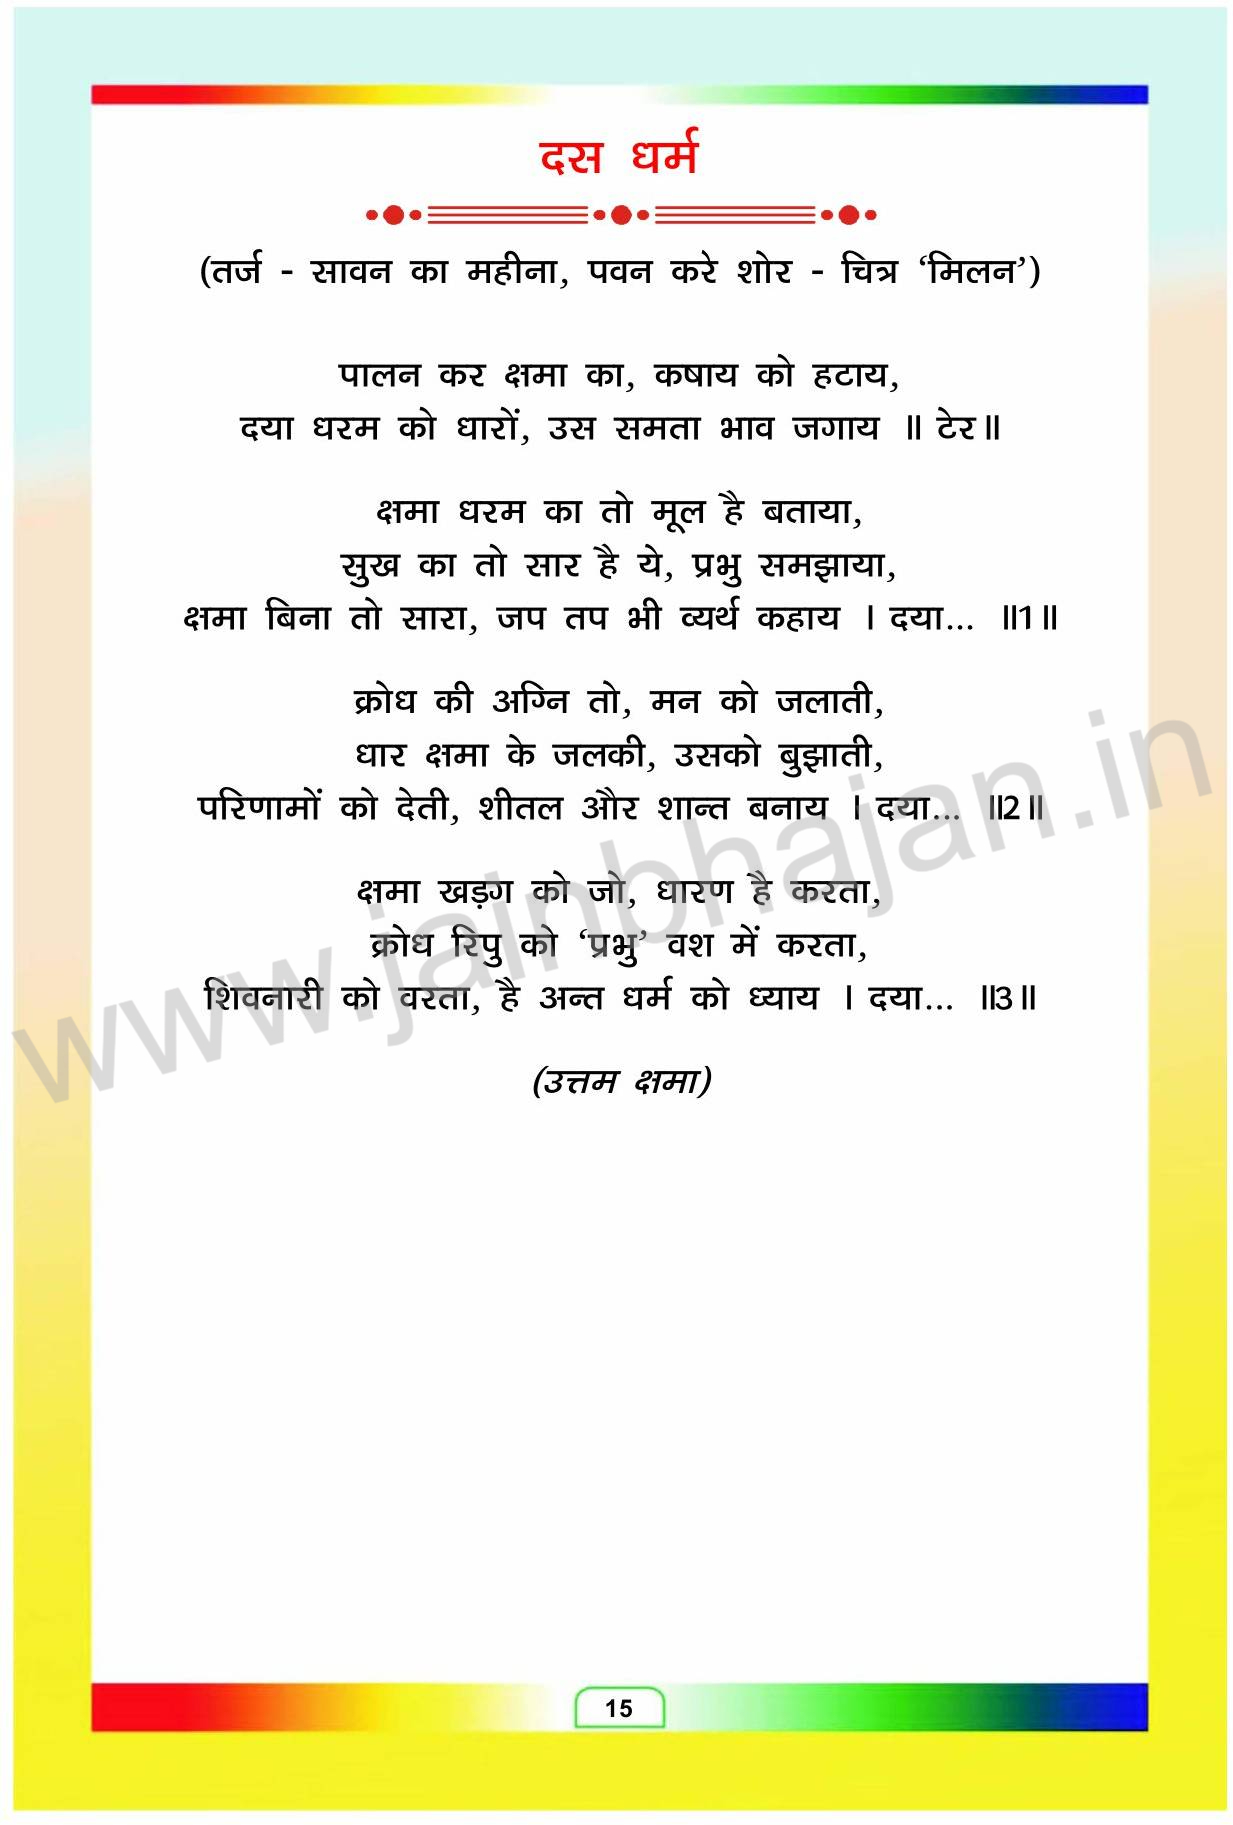 दस धर्म
(तर्ज - सावन का महीना, पवन करे शोर - चित्र ‘मिलन’)
पालन कर क्षमा का, कषाय को हटाय,
दया धरम को धारों, उस समता भाव जगाय ॥ टेर॥
क्षमा धरम का तो मूल है बताया,
सुख का तो सार है ये, प्रभु समझाया,
क्षमा बिना तो सारा, जप तप भी व्यर्थ कहाय । दया... ॥1॥
क्रोध की अग्नि तो, मन को जलाती,
धार क्षमा के जलकी, उसको बुझाती,
परिणामों को देती, शीतल और शान्त बनाय । दया... ॥2॥
क्षमा खड़ग को जो, धारण है करता,
क्रोध रिपु को ‘प्रभु’ वश में करता,
शिवनारी को वरता, है अन्त धर्म को ध्याय । दया... ॥3॥
(उत्तम क्षमा)
www.jainbhajan.in
15